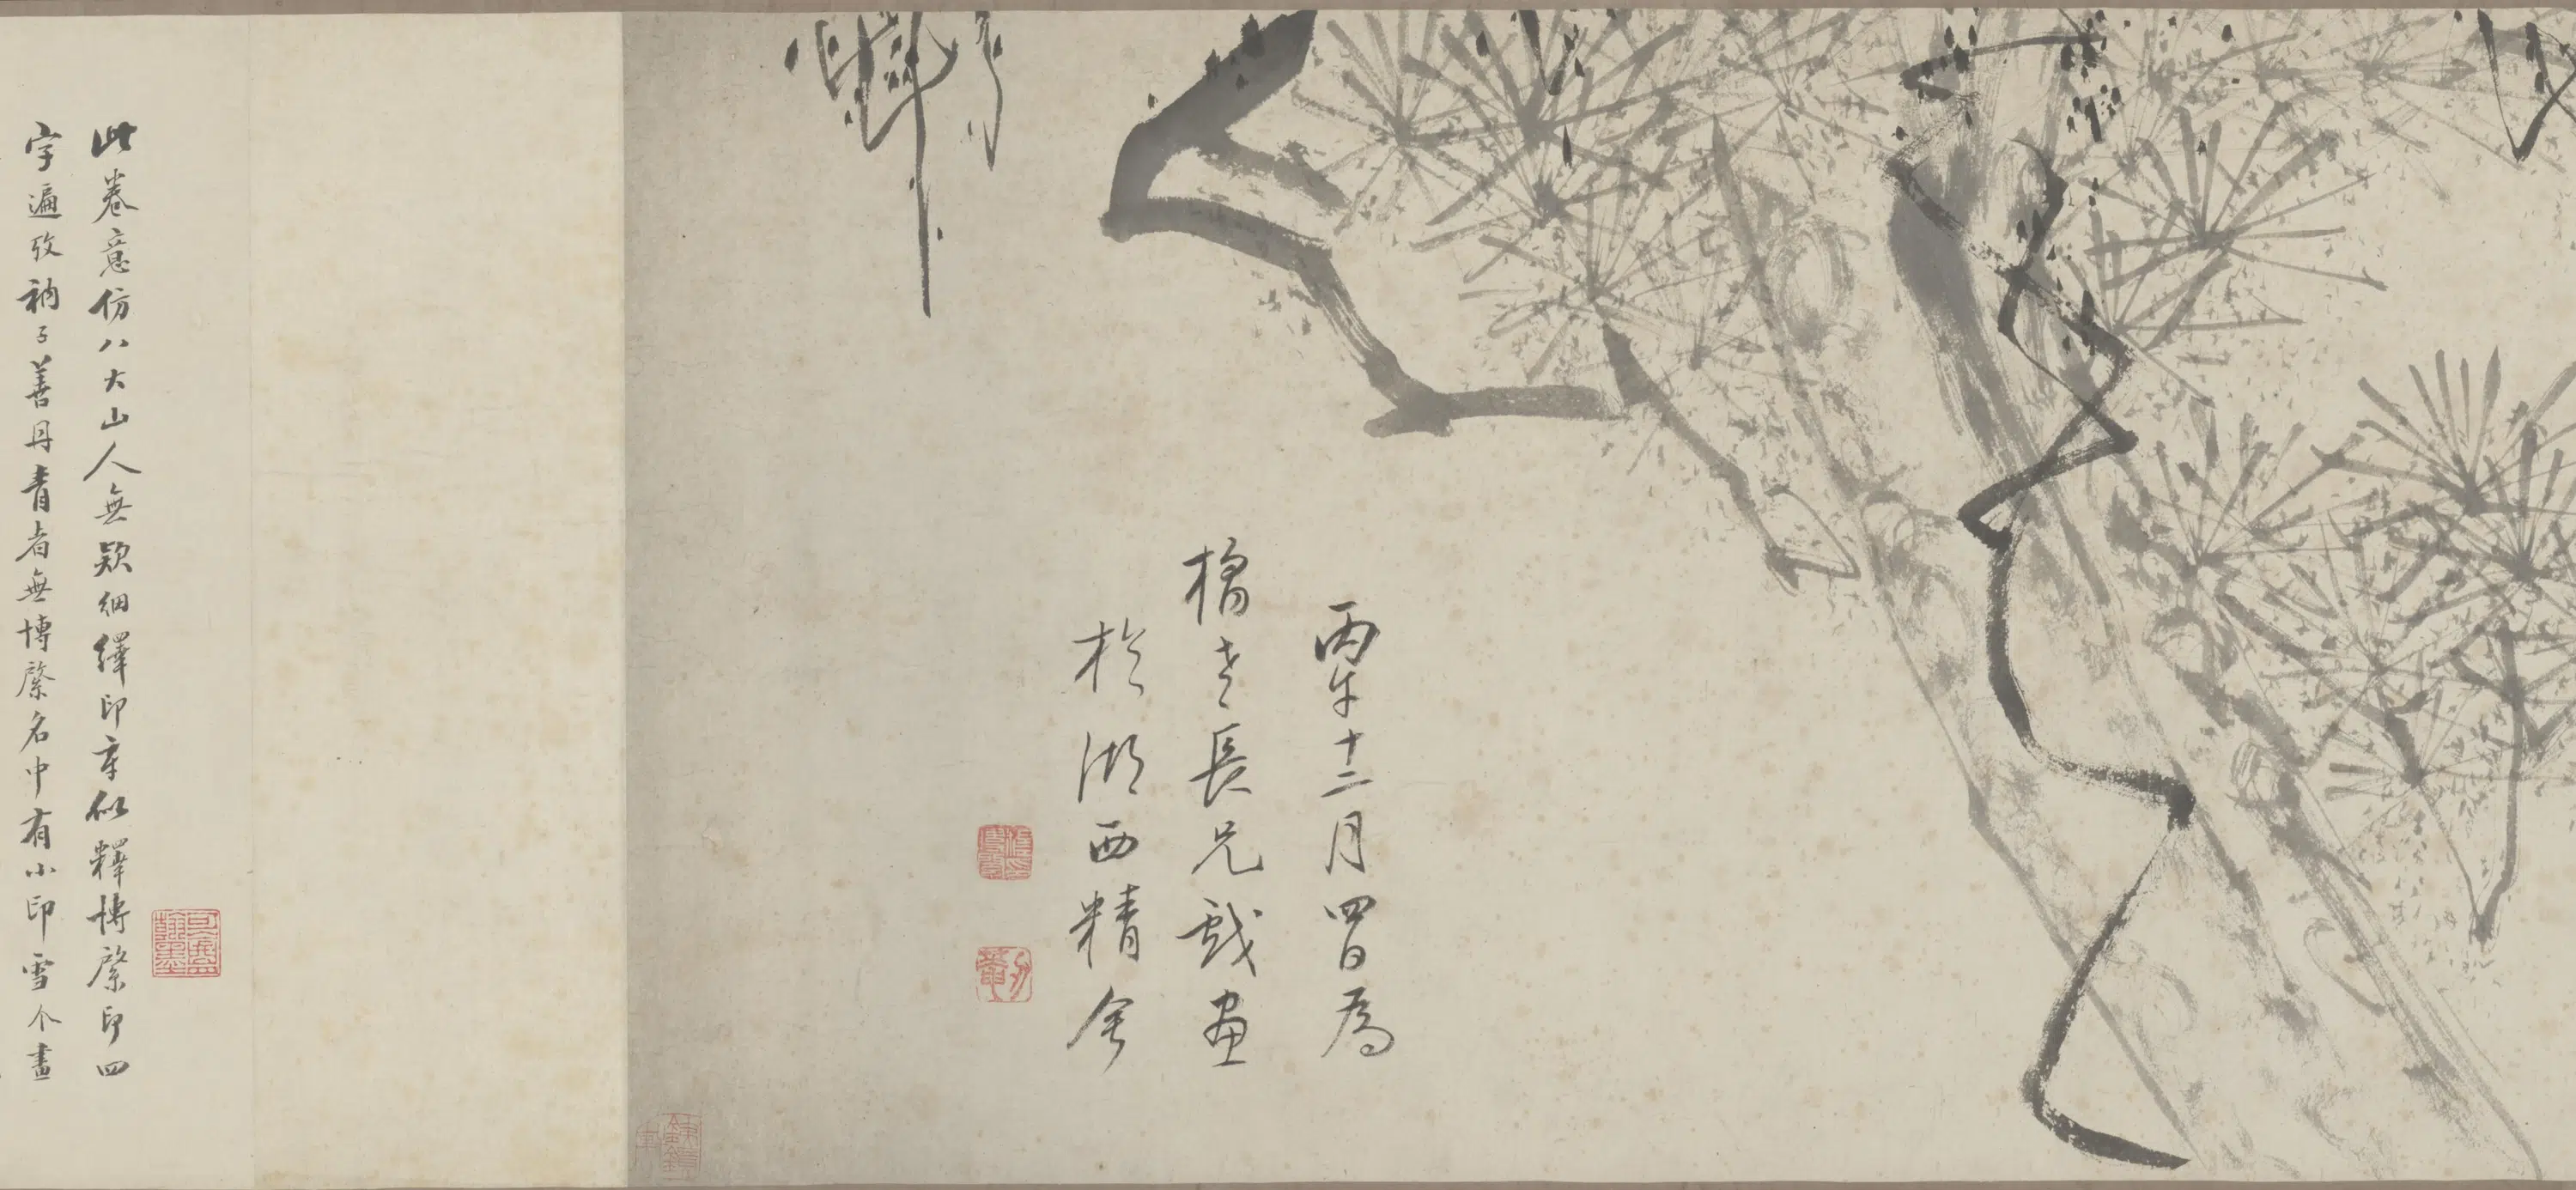 丙午十二月四日為
橋老長兄戲畫
於湖西精舍
此卷意仿八大山人無欵細繹印章似釋博綮印四
字遍攷衲子善丹青者無博綮名中有小印雪个畫